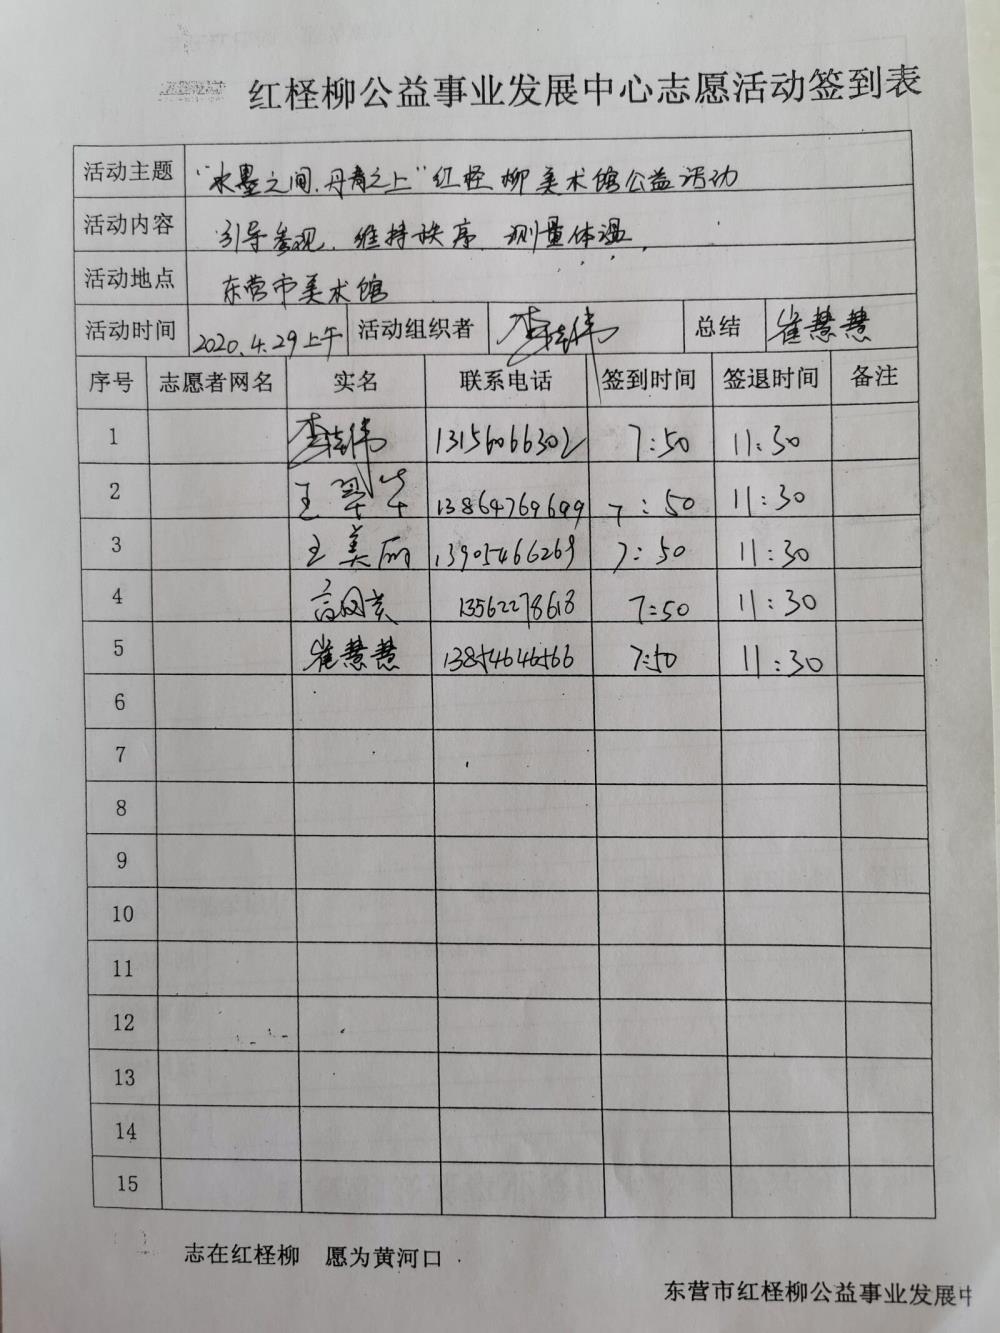 红柽柳公益事业发展中心志愿活动签到表
活动主题 “水墨之间、丹青之上”红柽柳美术馆公益活动
活动内容 引导参观、维持秩序、测量体温
活动地点 东营市美术馆
活动时间 2020.4.29上午 活动组织者 李 伟 总结 崔慧慧
序号 志愿者网名 实名 联系电话 签到时间 签退时间 备注
1 李 伟 13156066302 7:50 11:30
2 王翠华 13864769699 7:50 11:30
3 王美丽 13905466269 7:50 11:30
4 高 13562278618 7:50 11:30
5 崔慧慧 13854646566 7:50 11:30
6
7
8
9
10
11
12
13
14
15
志在红柽柳 愿为黄河口
东营市红柽柳公益事业发展中